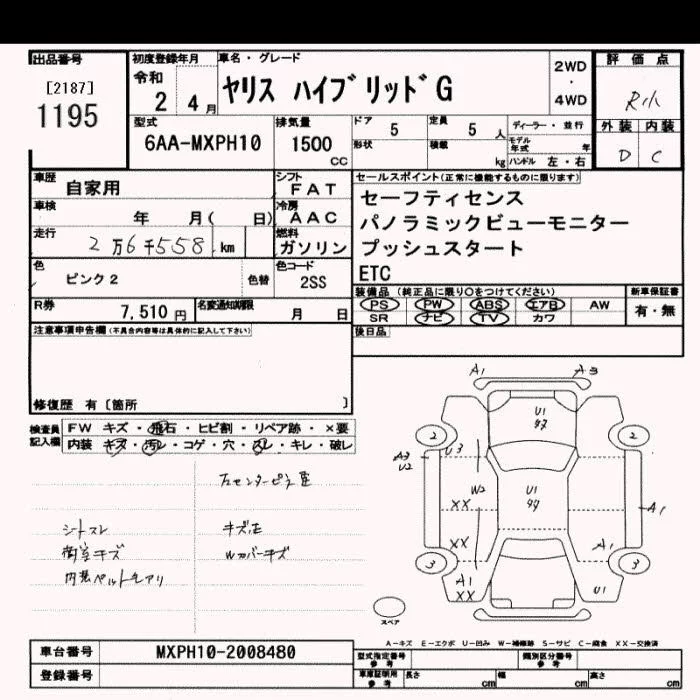 出品番号
[2187]
1195
初度登録年月
令和
2 4 月
車名・グレード
ヤリス ハイブリッド G
2WD
・
4WD
評価点
R小
外装 内装
D C
型式
6AA-MXPH10
排気量
1500
CC
ドア 5
定員 5 人
形状
積載 kg
ディーラー・並行
モデル年式 年
ハンドル 左・右
車歴 自家用
シフト FAT
車検 年 月( 日)
冷房 AAC
走行 2万6千558 km
燃料 ガソリン
色 ピンク2
色替
色コード 2SS
R券 7,510 円
名変通知期限 月 日
セールスポイント(正常に機能するものに限ります)
セーフティセンス
パノラミックビューモニター
プッシュスタート
ETC
装備品(純正品に限り○をつけてください)
新車保証書
PS PW ABS エアB AW
SR ナビ TV カワ
有・無
後日品
注意事項申告欄(不具合内容等は具体的に記入して下さい)
修復歴 有〔箇所 〕
検査員記入欄
FW キズ・飛石・ヒビ割・リペア跡・×要
内装 キズ・汚レ・コゲ・穴・スレ・キレ・破レ
左センターピラ重
シートスレ
キズ圧
Wカバーキズ
A1 A3
U1
2 2
A3
U2
U3
W2
U1
XX
A1
XX
A1
3 3
A1
XX
U1
スペア
A-キズ E-エクボ U-凹み W-補修跡 S-サビ C-腐食 XX-交換済
車台番号 MXPH10-2008480
登録番号
型式指定番号
参考
類別区分番号
参考
車庫証明用
参考
長さ cm
幅 cm
高さ cm